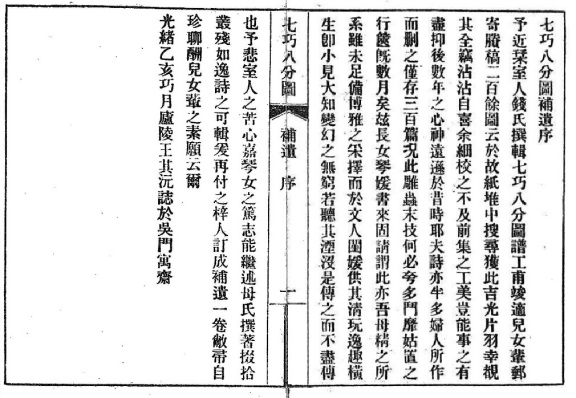 七巧八分圖補遺序
予近栞室人錢氏撰輯七巧八分圖譜工甫竣適兒女輩郵
寄賸稿二百餘圖云於故紙堆中搜尋獲此吉光片羽幸覩
其全竊沾沾自喜余細校之不及前集之工美豈能事之有
盡抑後數年之心神遠遜於昔時耶夫詩亦半多婦人所作
而删之僅存三百篇況此雕蟲末技何必夸多鬥靡姑置之
行篋旣數月矣茲長女琴媛書來固請謂此亦吾母精之所
系雖未足備博雅之采擇而於文人閨媛供其清玩逸趣橫
生卽小見大知變幻之無窮若聽其湮沒是傳之而不盡傳
七巧八分圖
補遺 序
一
也予悲室人之苦心嘉琴女之篤志能繼述母氏撰著掇拾
叢殘如逸詩之可輯爰再付之梓人訂成補遺一卷敝帚自
珍聊酬兒女輩之素願云爾
光緒乙亥巧月廬陵王其沅誌於吳門寓齋